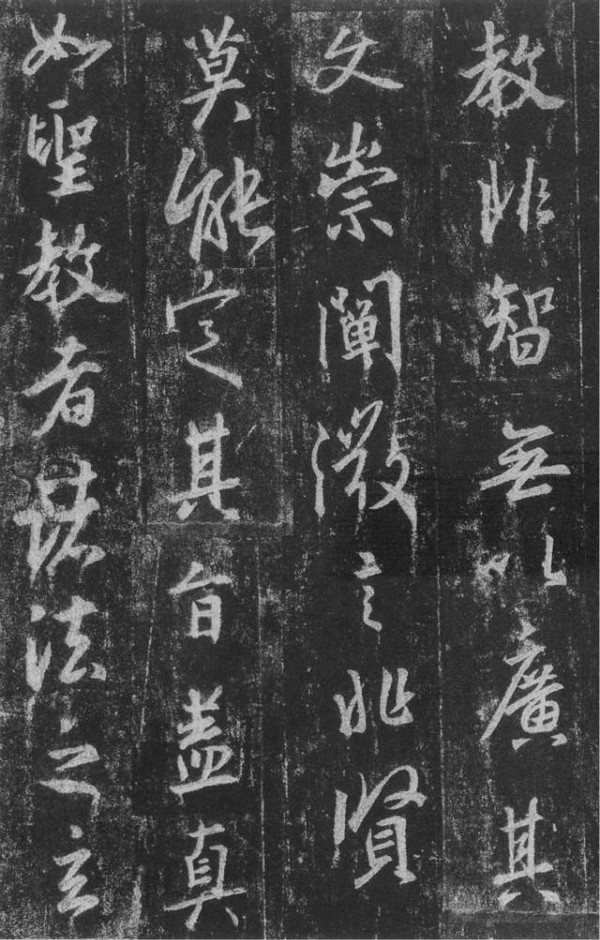 教非智無以廣其
文崇闡微言非賢
莫能定其旨蓋真
如聖教者諸法之玄